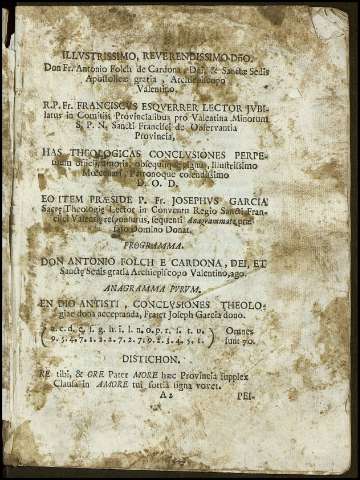 ILLVSTRISSIMO, REVERENDISSIMO Dño.
Don Fr. Antonio Folch de Cardona, Dei, & Sanctæ Sedis
Apostolicæ gratia, Archiepiscopo
Valentino.
R.P. Fr. FRANCISCVS ESQVERRER LECTOR JVBI-
latus in Comitiis Provincialibus pro Valentina Minorum
S. P. N. Sancti Francisci de Observantia
Provincia,
HAS THEOLOGICAS CONCLVSIONES PERPE-
Illustrissimo
Mœcenati, Patronoque colendissimo
D. O. D.
EO ITEM PRÆSIDE P. Fr. JOSEPHVS GARCIA
Sacræ Theologiæ Lector in Conventu Regio Sancti Fran-
cisci Valentiæ, sequenti Anagrammate præ-
fato Domino Donat.
PROGRAMMA.
DON ANTONIO FOLCH E CARDONA, DEI, ET
Sanctę Sedis gratia Archiepiscopo Valentino, ago.
ANAGRAMMA PVRVM.
EN DIO ANTISTI, CONCLVSIONES THEOLO-
giæ dona acceptanda, Frater Joseph Garcia dono.
a. c. d. e. f. g. h. i. l. n. o. p. r. s. t. u. Omnes
sunt 70.
DISTICHON.
RE tibi, & ORE Pater MORE hæc Provincia supplex
Clausa in AMORE tui fortia signa vovet.
A2 PEI-